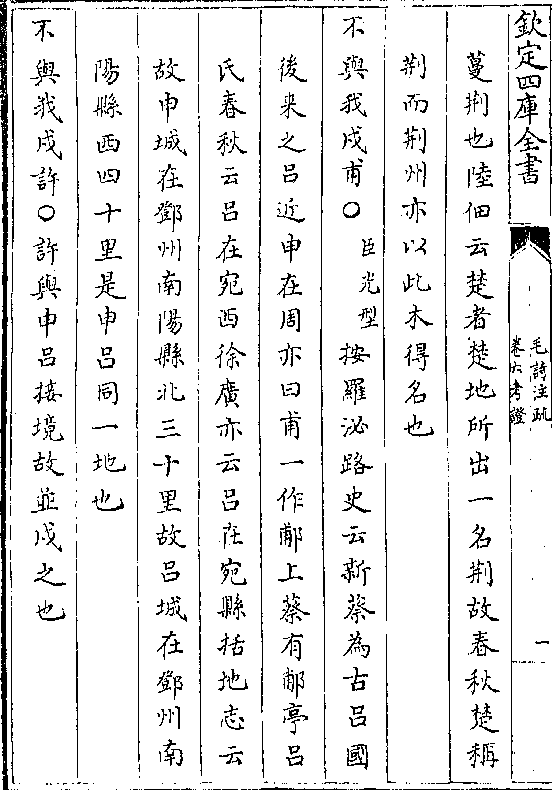 欽定四庫全書
毛詩注疏
卷六考證
一
蔓荆也陸佃云楚者楚地所出一名荆故春秋楚稱
荆而荆州亦以此木得名也
不與我戍甫○臣光型按羅泌路史云新蔡為古呂國
後来之呂近申在周亦曰甫一作鄜上蔡有鄜亭呂
氏春秋云呂在宛西徐廣亦云呂在宛縣括地志云
故申城在鄧州南陽縣北三十里故呂城在鄧州南
陽縣西四十里是申呂同一地也
不與我戍許○許與申呂接境故並戍之也